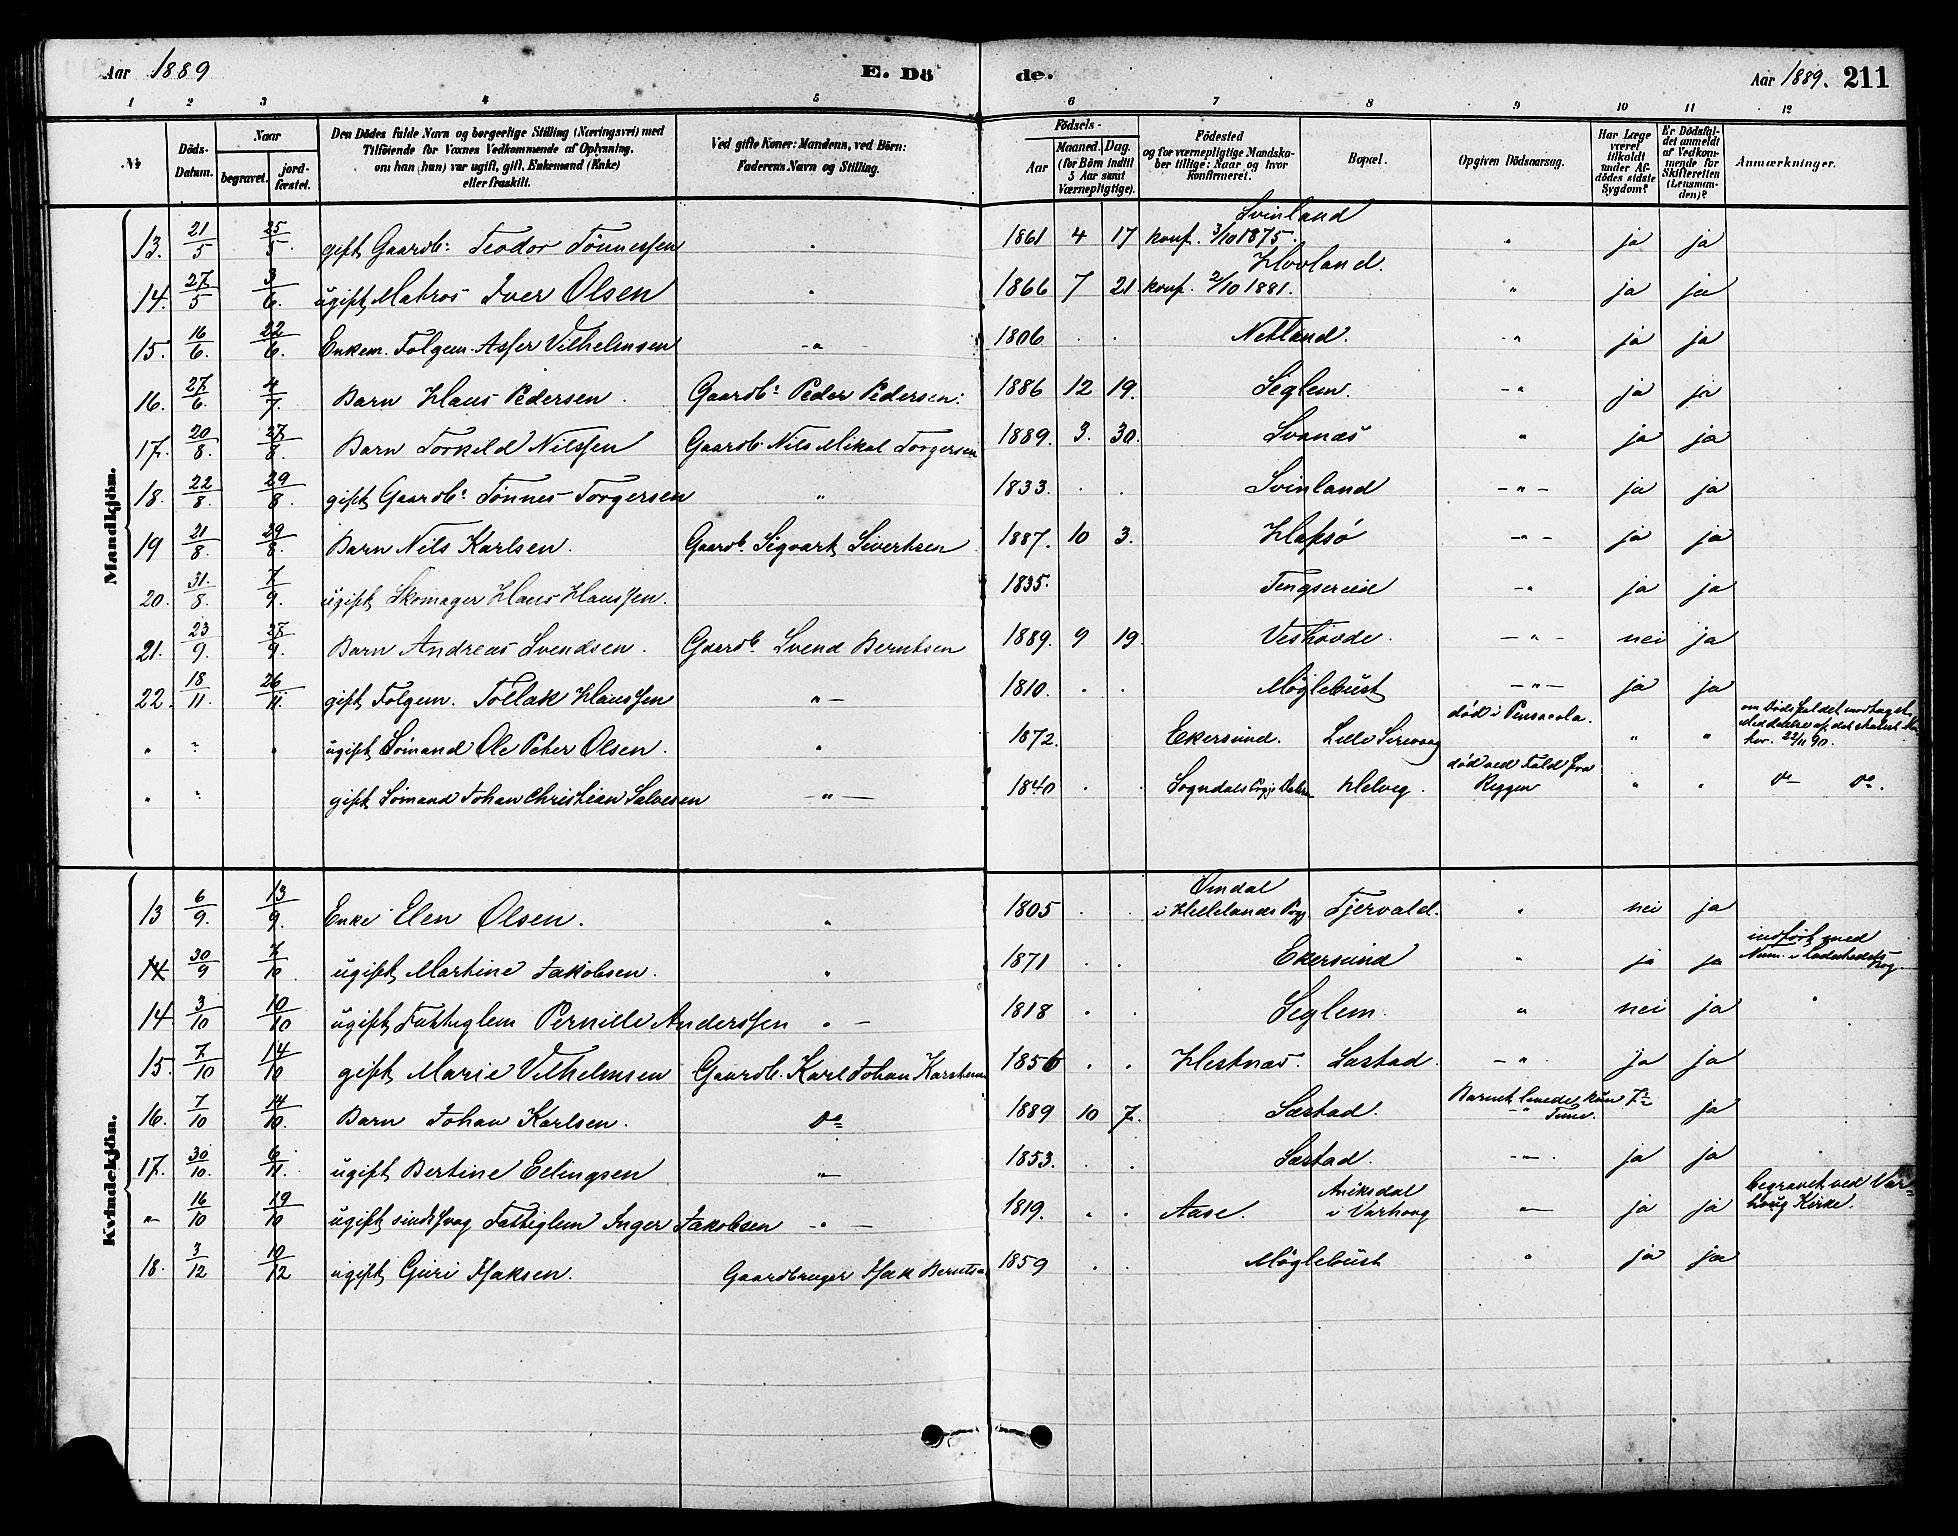 Aar 1889 E. Dö de. Aar 1889. 211
1 2 3 4 5 6 7 8 9 10 11 12
№ Döds-Datum. Naar begravet. jordfæstet. Den Dödes fulde Navn og borgerlige Stilling (Næringsvei) med Tilföiende for Voxnes Vedkommende af Oplysning, om han (hun) var ugift, gift, Enkemand (Enke) eller fraskilt. Ved gifte Koner: Mandens, ved Börn: Faderens Navn og Stilling. Födsels- Aar Maaned. Dag. (for Börn indtil 5 Aar samt Værnepligtige). Födested og for værnepligtige Mandskaber tillige: Naar og hvor Konfirmeret. Bopæl. Opgiven Dödsaarsag. Har Læge været tilkaldt under Afdödes sidste Sygdom? Er Dödsfaldet anmeldt af Vedkommende for Skifteretten (Lensmanden)? Anmærkninger.
Mandkjön.
13. 21/5 25/5. gift Gaardb: Teodor Tönnessen " 1861 4 17 konf. 3/10 1875. Svinland " ja ja
14. 27/5 3/6. ugift Matros Iver Olsen " 1866 7 21. konf. 2/10 1881. Hovland. " ja ja
15. 16/6. 22/6. Enkem. Folgem. Asser Vilhelmsen - " 1806 . . Netland. - " ja ja
16. 27/6. 4/7. Barn Hans Pedersen. Gaardb: Peder Pedersen. 1886 12 19. Seglem. - " ja ja
17. 20/8. 27/8. Barn Torkild Nilssen Gaardb. Nils Mikal Torgersen 1889. 3. 30. Svanæs " ja ja
18. 22/8. 29/8. gift Gaardb: Tönnes Torgersen " 1833. . . Svinland - " - ja ja
19 21/8. 29/8. Barn Nils Karlsen. Gaardb. Sigvart Sivertsen 1887. 10 3. Hafsö - " - ja ja
20. 31./8. 7/9. ugift Skomager Hans Hanssen. 1835. Tengsereid - " ja ja
21. 23/9. 28/9. Barn Andreas Svendsen. Gaardb. Svend Berntsen 1889. 9 19. Veshovde. - " - nei ja
22. 18/11. 26./11. gift Folgem. Tollak Hanssen " - 1810. . . Möglebust - " - ja ja
" " " ugift Sömand Ole Peter Olsen. " 1872. Ekersund. Lille Sirevaag död i Pensacola. " " om Dödsfaldet modtaget Meddelelse af det 22/11 90.
" " gift Sömand Johan Christian Salvesen - " - 1840 . . Sogndals Helveg. död ved Fald fra Riggen " " do - do.
Kvindekjön.
13 6/9. 13/9. Enke Elen Olsen. " 1805 . . Omdal i Hellelands Prgj Tjervald. " nei ja
14 30/9 7/10 ugift Martine Jakobsen. " 1871 . . Ekersund " ja ja indfört med Num. i Ladestedets Bog
14. 3/10 10/10 ugift Fattiglem Pernille Anderssen " - 1818 . . Seglem. " nei ja "
15. 7/10 14/10 gift Marie Vilhelmsen Gaardb. Karl Johan Karstensen 1856 . . Hestnæs. Sæstad. - " ja ja
16. 7/10 14/10. Barn Johan Karlsen. Do 1889 10 7. Sæstad. Barnet levede kun - " Time. ja
17. 30/10. 6/11. ugift Bertine Eelingsen " 1853. . . Sæstad. - " - ja ja
" 16/10 19/10 ugift sindssvag Fattiglem Inger Jakobsen - " - 1819. . . Aase. Aniksdal i Varhoug " ja ja begravet ved Varhoug Kirke.
18. 3/12 10/12 ugift Guri Isaksen. Gaardbruger Isak Berntsen 1859 . . Möglebust " ja ja